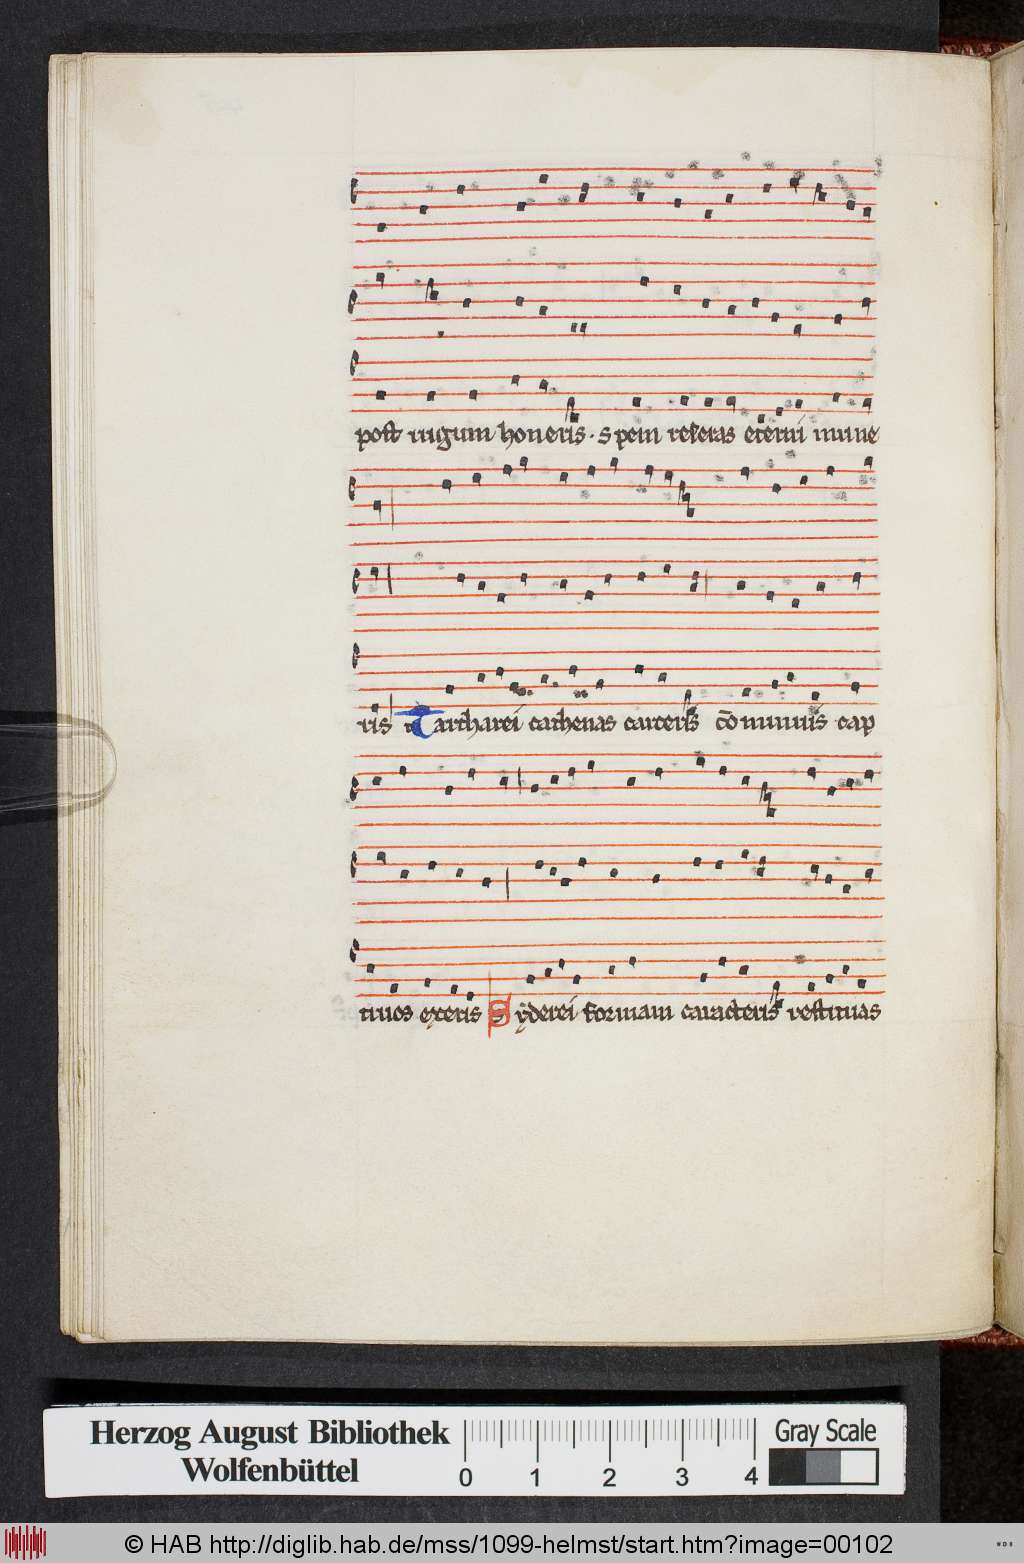 post iugum honeris · spem reseras eterni mune
ris Tartharei cathenas carceris cōminuis cap
tiuos exteris Syderei formam caracteris restituas
Herzog August Bibliothek
Wolfenbüttel
0 1 2 3 4
Gray Scale
© HAB http://diglib.hab.de/mss/1099-helmst/start.htm?image=00102